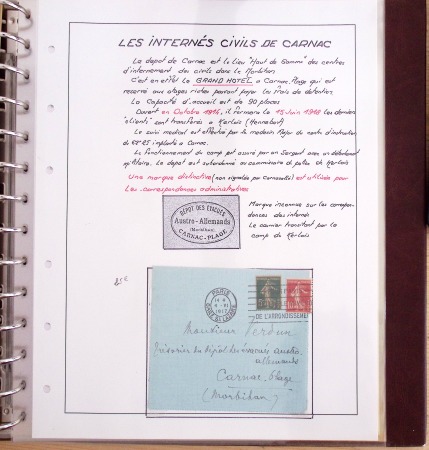 LES INTERNÉS CIVILS DE CARNAC
Le depot de Carnac est le lieu "Haut de Gamme" des centres
d'internement des civils dans le Morbihan
C'est en effet le GRAND HOTEL a Carnac Plage qui est
reservé aux otages riches pouvant payer les frais de detention
La Capacité d'accueil est de 90 places
Ouvert en Octobre 1914, il fermera le 15 Juin 1918 les derniers
"clients" sont transférés a Kerlois (Hennebont)
Le suivi medical est effectué par le medecin Major du centre d'instruction
implanté a Carnac.
Le fonctionnement du camp est assuré par un Sergent avec un detachement
militaire. Le depot est subordonné au de Kerlois
Une marque distinctive (non signalée par ) est utilisée pour
les correspondances administratives
DÉPOT DES ÉVACUÉS
Austro-Allemands
(Morbihan)
CARNAC-PLAGE
Marque inconnue sur les correspon-
dences des internés
Le courrier transitant par le
camp de Kerlois
PARIS
GARE ST LAZARE
1917
DE L'ARRONDISSEMENT
Monsieur Verdun
du dépôt des évacués austro-
allemands
Carnac-Plage
(Morbihan)